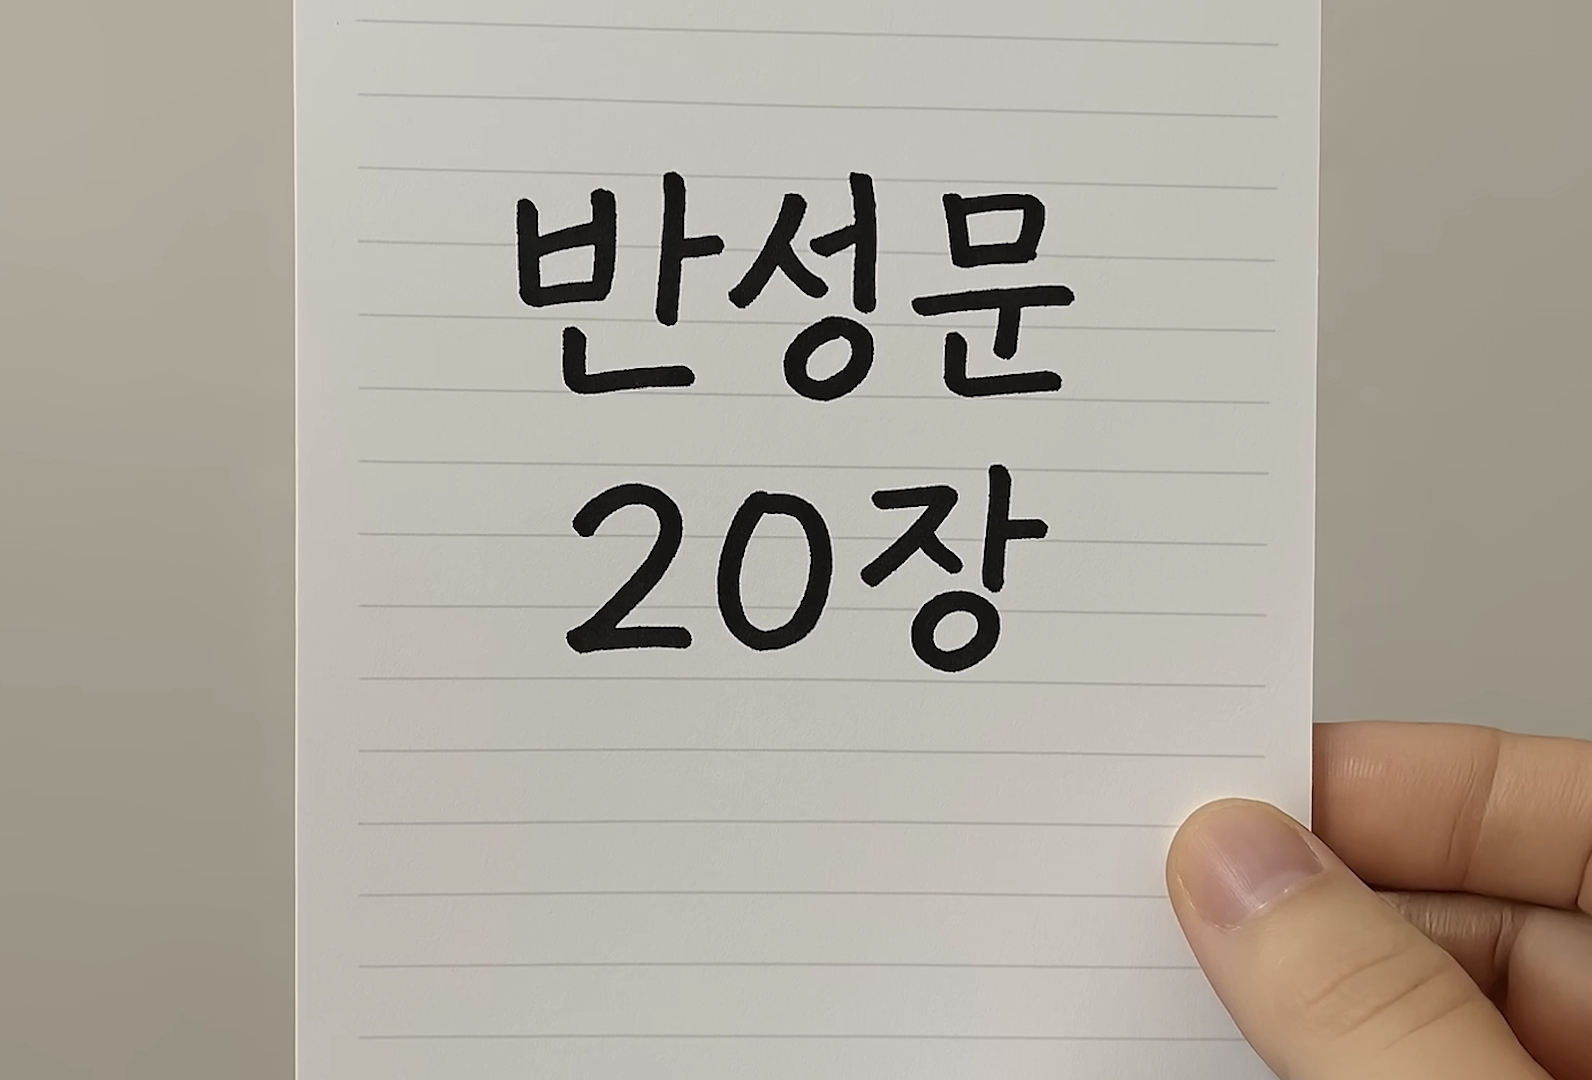 반성문
20장